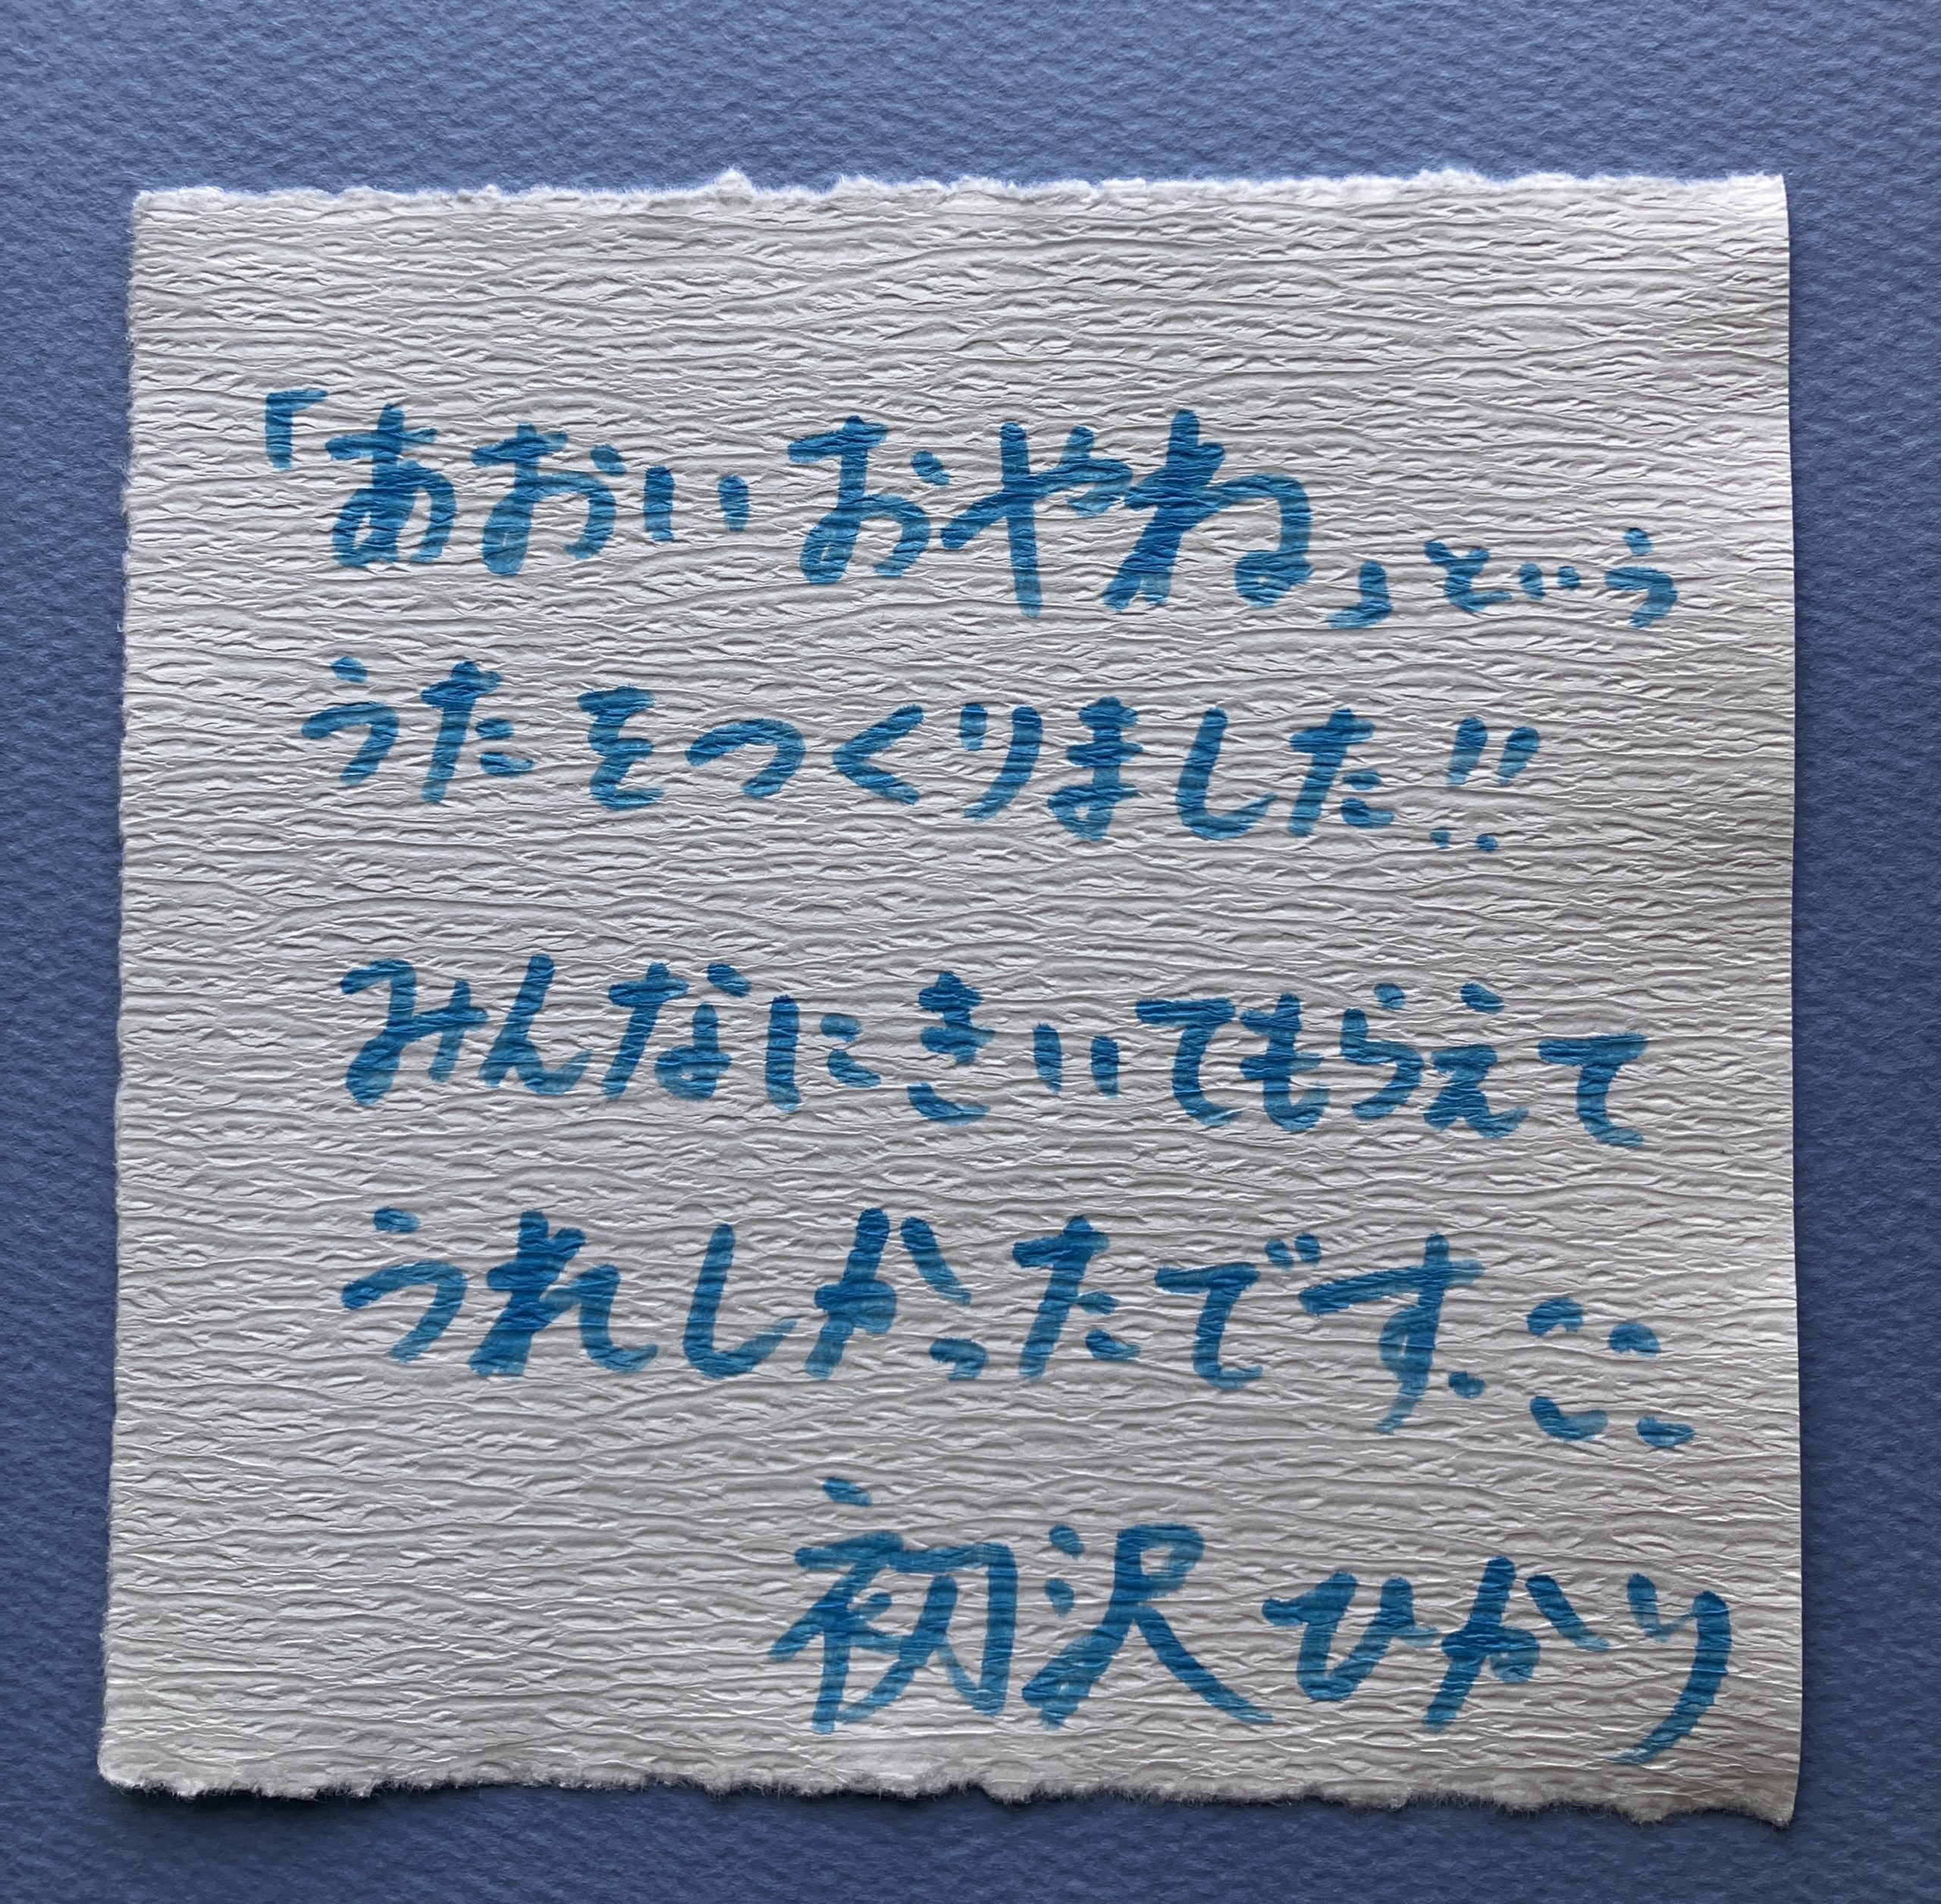 「あおい おやね」という
うたをつくりました!!
みんなにきいてもらえて
うれしかったです。
初沢ひかり